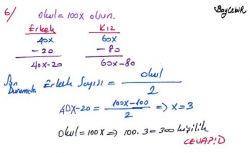 6/ Okul = 100X olsun.
Erkek Kız
40X 60X
-20 -80
40X-20 60X-80
Son Durumda Erkek Sayısı = Okul / 2
40X-20 = 100X-100 / 2 ⇒ X=3
Okul = 100X ⇒ 100.3 = 300 kişilik
CEVAP: D